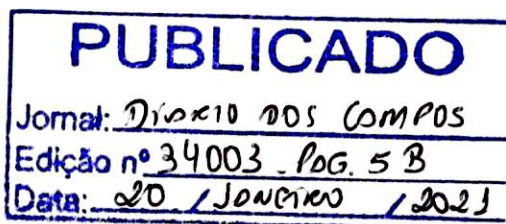 PUBLICADO
Jornal: DIÁRIO DOS CAMPOS
Edição nº 34003 PÁG. 5 B
Data: 20 / JANEIRO / 2021